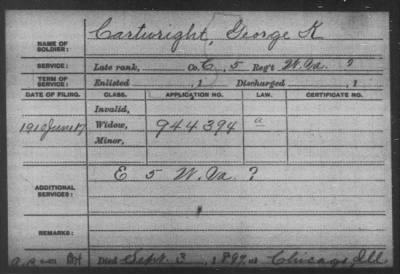 Cartwright, George K
NAME OF SOLDIER:
SERVICE: Late rank, Co. C, 5 Reg't W. Va. ?
TERM OF SERVICE: Enlisted , 1 Discharged , 1
DATE OF FILING. CLASS. APPLICATION NO. LAW. CERTIFICATE NO.
Invalid,
1910 June 17 Widow, 944394 a
Minor,
E 5 W. Va. ?
ADDITIONAL SERVICES:
REMARKS:
Died Sept. 3, 1899, at Chicago, Ill